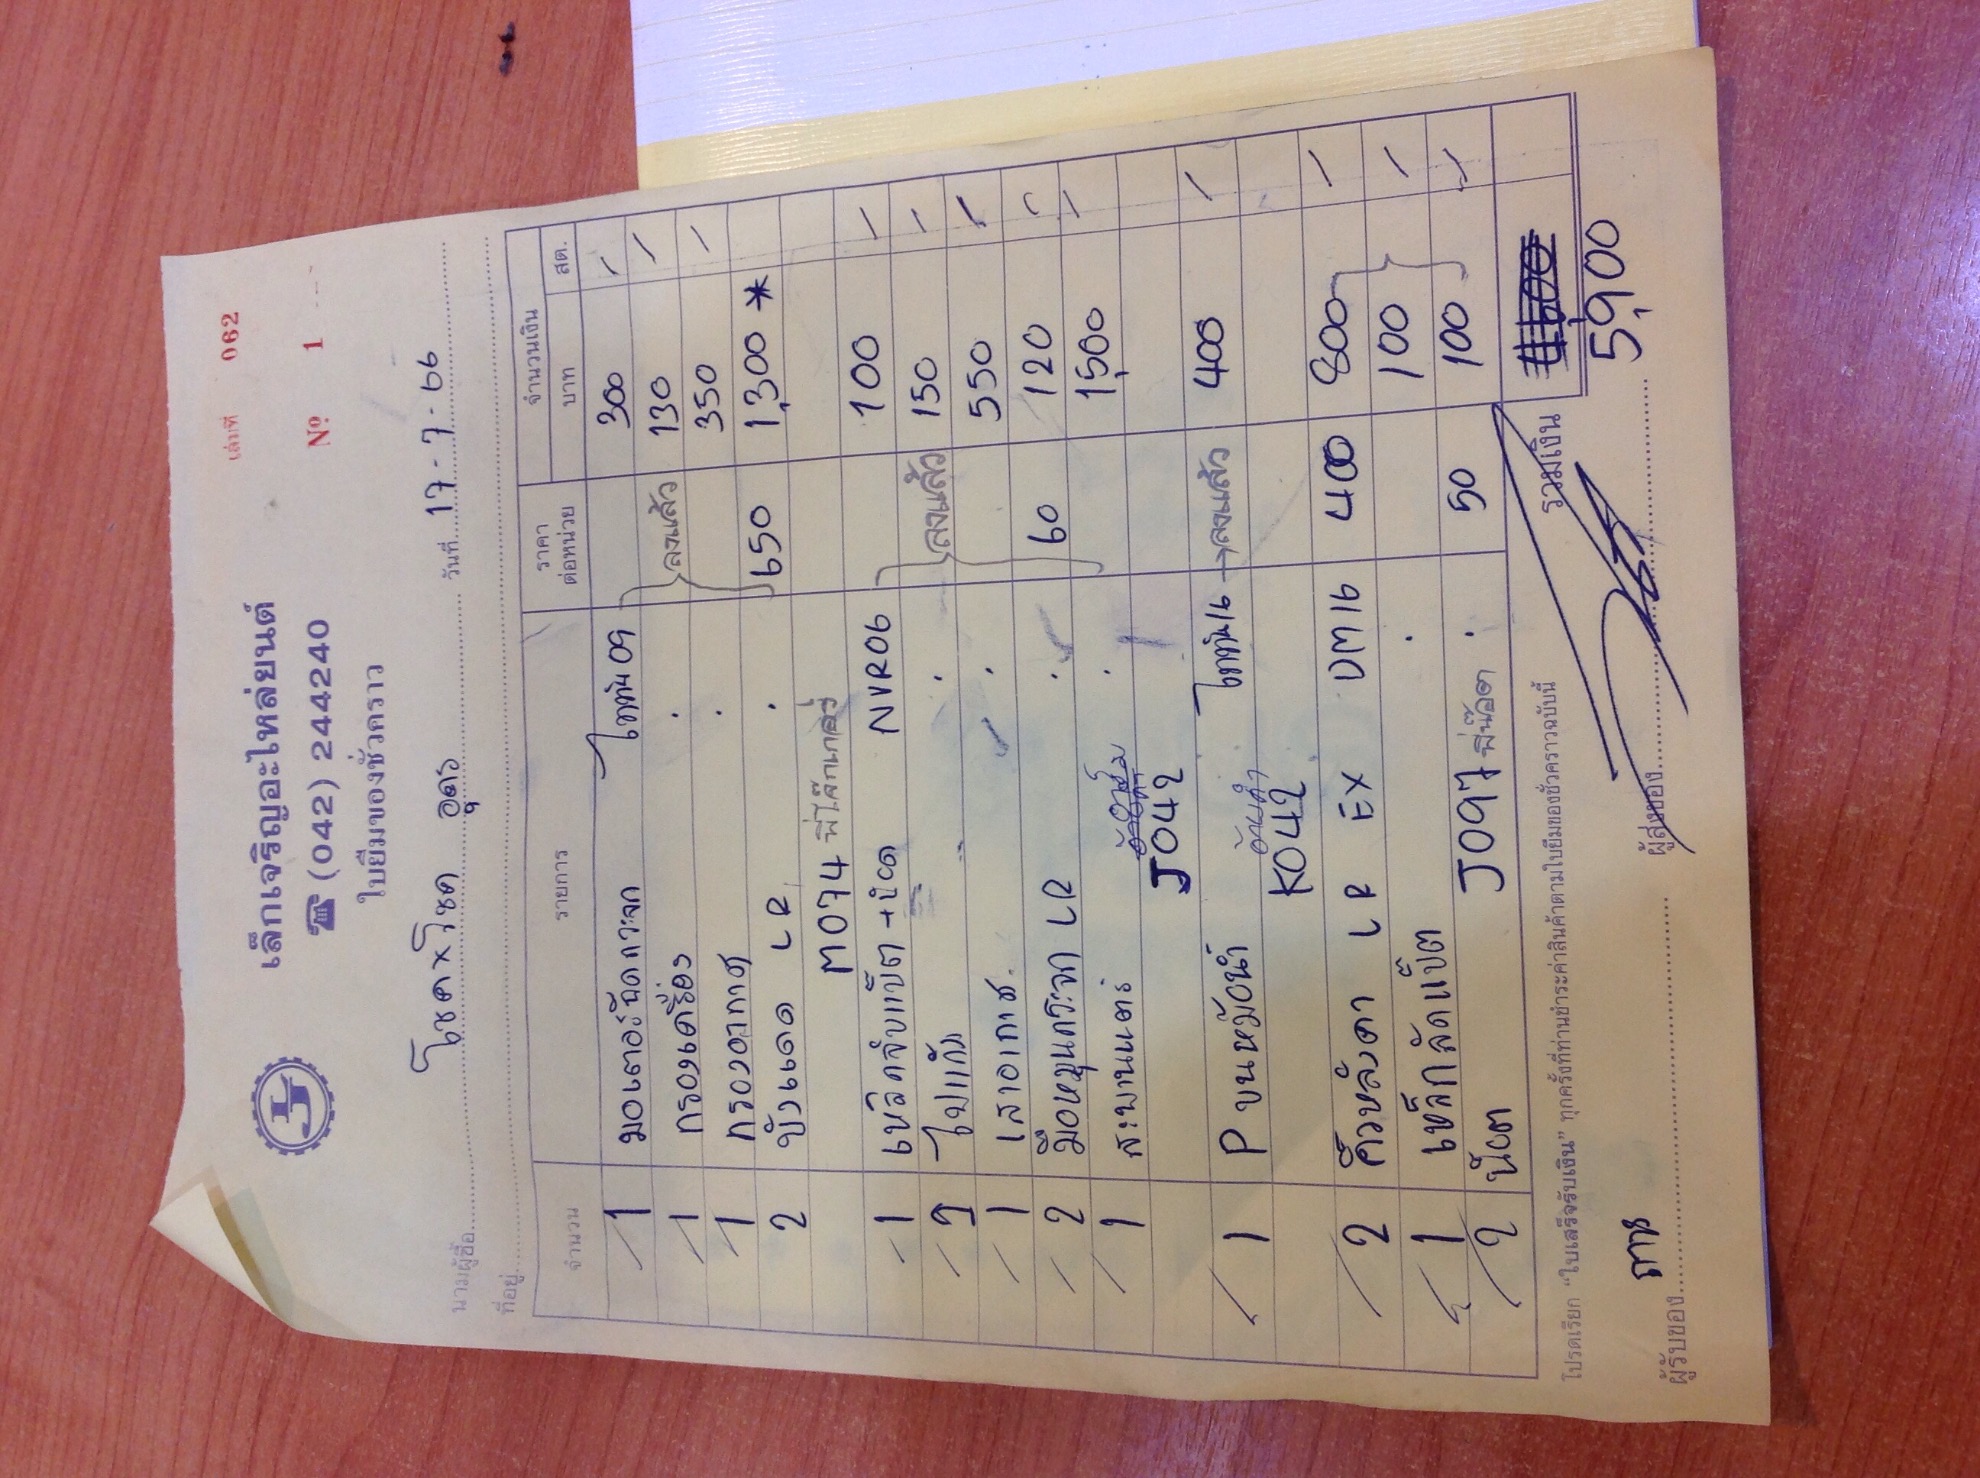 เล่มที่ 062
เล็กเจริญอะไหล่ยนต์
☎ (042) 244240
Nº 1
ใบยืมของชั่วคราว
นามผู้ซื้อ โชคxโชค อุดร วันที่ 17-7-66
ที่อยู่
จำนวน รายการ ราคาต่อหน่วย จำนวนเงิน บาท สต.
1 มอเตอร์ฉีดกระจก ไททัน 09 300 /
1 กรองเครื่อง . ลงแล้ว 130 /
1 กรองอากาศ . 350 /
2 บังแดด LR . 650 1,300 *
M074 พี่โล๊กเกลร์
1 เหล็กจับแบ็ต + น๊อต NVR06 100 /
2 ใบแก้ว . ลงแล้ว 150 /
1 เสาอากาศ . 550 /
2 มือหมุนกระจก LR . 60 120 /
1 สะพานแตร . 1,500 /
J042
1 P บนหม้อน้ำ ไททัน 16 → ลงแล้ว 400 /
K042
2 คิ้วหลังคา LR EX VM16 400 800 /
1 เหล็กลัดแบ็ต . 100 /
2 น๊อต . 50 100 /
J097 พี่น๊อต
รวมเงิน 5,900
โปรดเรียก "ใบเสร็จรับเงิน" ทุกครั้งที่ท่านชำระค่าสินค้าตามใบยืมของชั่วคราวฉบับนี้
ผู้รับของ ผู้ส่งของ